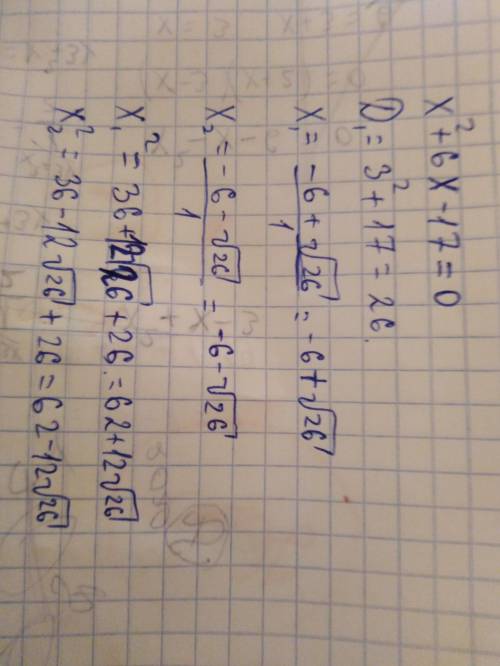 x² + 6x - 17 = 0
D₁ = 3² + 17 = 26.
x₁ = (-6 + √26)/1 = -6 + √26
x₂ = (-6 - √26)/1 = -6 - √26
x₁² = 36 + 12√26 + 26 = 62 + 12√26
x₂² = 36 - 12√26 + 26 = 62 - 12√26